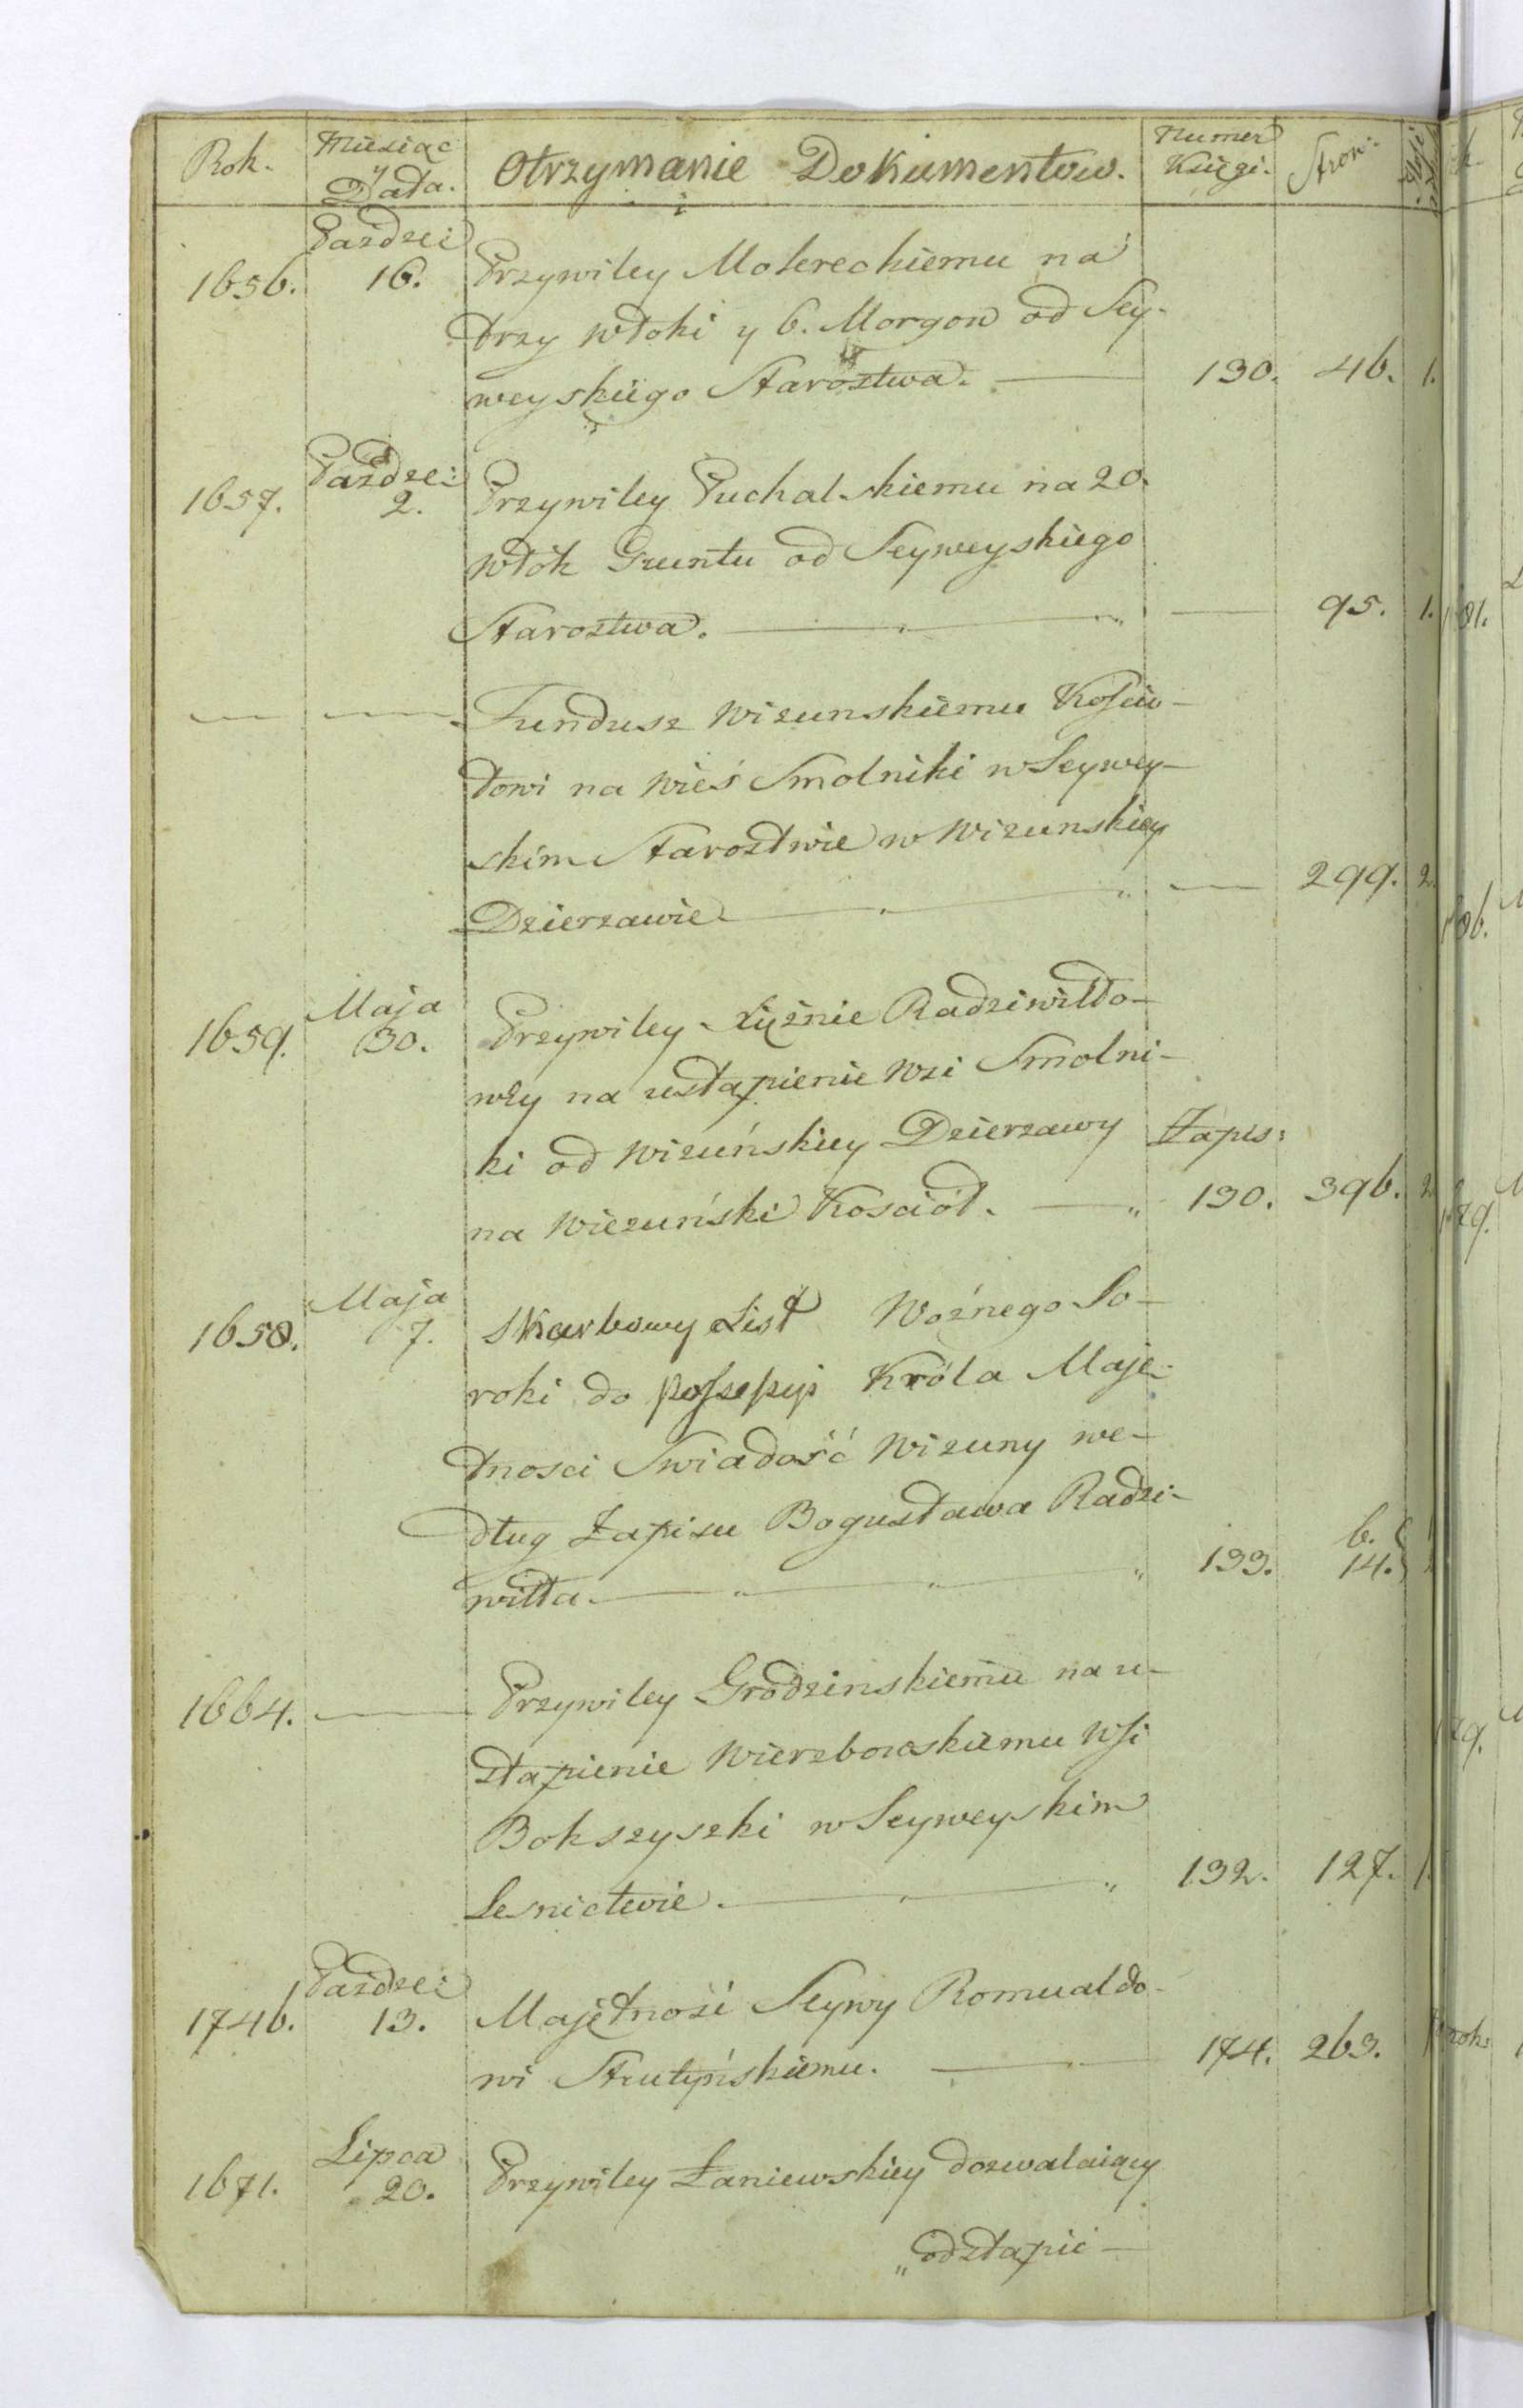 Rok. Miesiąc y Data. Otrzymanie Dokumentow. Numer Księgi. Stron:
Paździe:
1656. 16. Przywiley Moterechiemu na
trzy włoki y 6. Morgow od Sey-
weyskiego Starostwa. — 130. 46. 1.
Paździe:
1657. 2. Przywiley Puchalskiemu na 20.
włók Gruntu od Seyweyskiego
Starostwa. — — 95. 1.
— — Fundusz Wizunskiemu Kościo-
łowi na Wieś Smolniki w Seywey-
skim Starostwie w Wizunskiey
Dzierzawie — — 299. 2.
Maja
1659. 30. Przywiley Xiężnie Radziwiłło-
wey na ustąpienie Wsi Smolni-
ki od Wizuńskiey Dzierzawy Zapis:
na Wiezuński Kosciół. — 130. 396. 2.
Maja
1658. 7. Skarbowy List Woźnego So-
roki do possessyi Króla Maję-
tnosci Swiadość Wizuny we-
dług Zapisu Bogusława Radzi- 6.
wiłła. — 133. 14.
1664. — Przywiley Grodzinskiemu na u-
stąpienie Wierzbowskiemu Wsi
Bokszyszki w Seyweyskim
Lesnictwie. — 132. 127. 1.
Paździe:
1746. 13. Majętność Seywy Romualdo-
wi Strutyńskiemu. — 174. 263.
Lipca
1671. 20. Przywiley Łaniewskiey dozwalaiący
odstąpić —